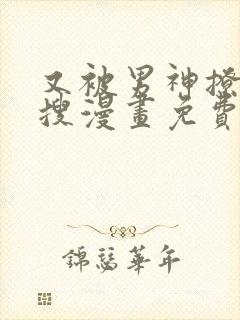 又被男神撩
搜漫畫免費
錦瑟華年